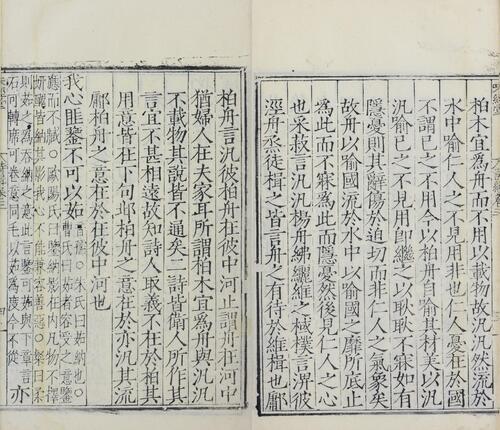 柏木宜爲舟用以載物故汎汎然流於
水中喻仁人之不見用非也仁人憂在於國
不謂已之不用今以柏舟自喻其材美以汎
汎喻已之不見用即繼之以耿耿不寐如有
隱憂則其辭傷於迫切而非仁人之氣象矣
故舟以喻國汎汎於水中以喻國之靡所底止
爲此而不寐爲此而隱憂然後見仁人之心
也采菽言汎汎楊舟紼纚維之棫樸言淠彼
涇舟烝徒楫之皆言舟之有待於維楫也鄘
柏舟言汎彼柏舟在彼中河止謂舟在河中
猶婦人在夫家耳所謂柏木宜爲舟與汎汎
不載物其說皆不通矣二詩皆衞人所作其
言宜不甚相遠故知詩人取義不在於柏其
用意皆在下句邶柏舟之意在於亦汎其流
鄘柏舟之意在於在彼中河也
我心匪鑒不可以茹
朱氏曰茹納也
曹氏曰茹者容受之意鑒
歐陽氏曰鑒納影在内凡物不擇
亦